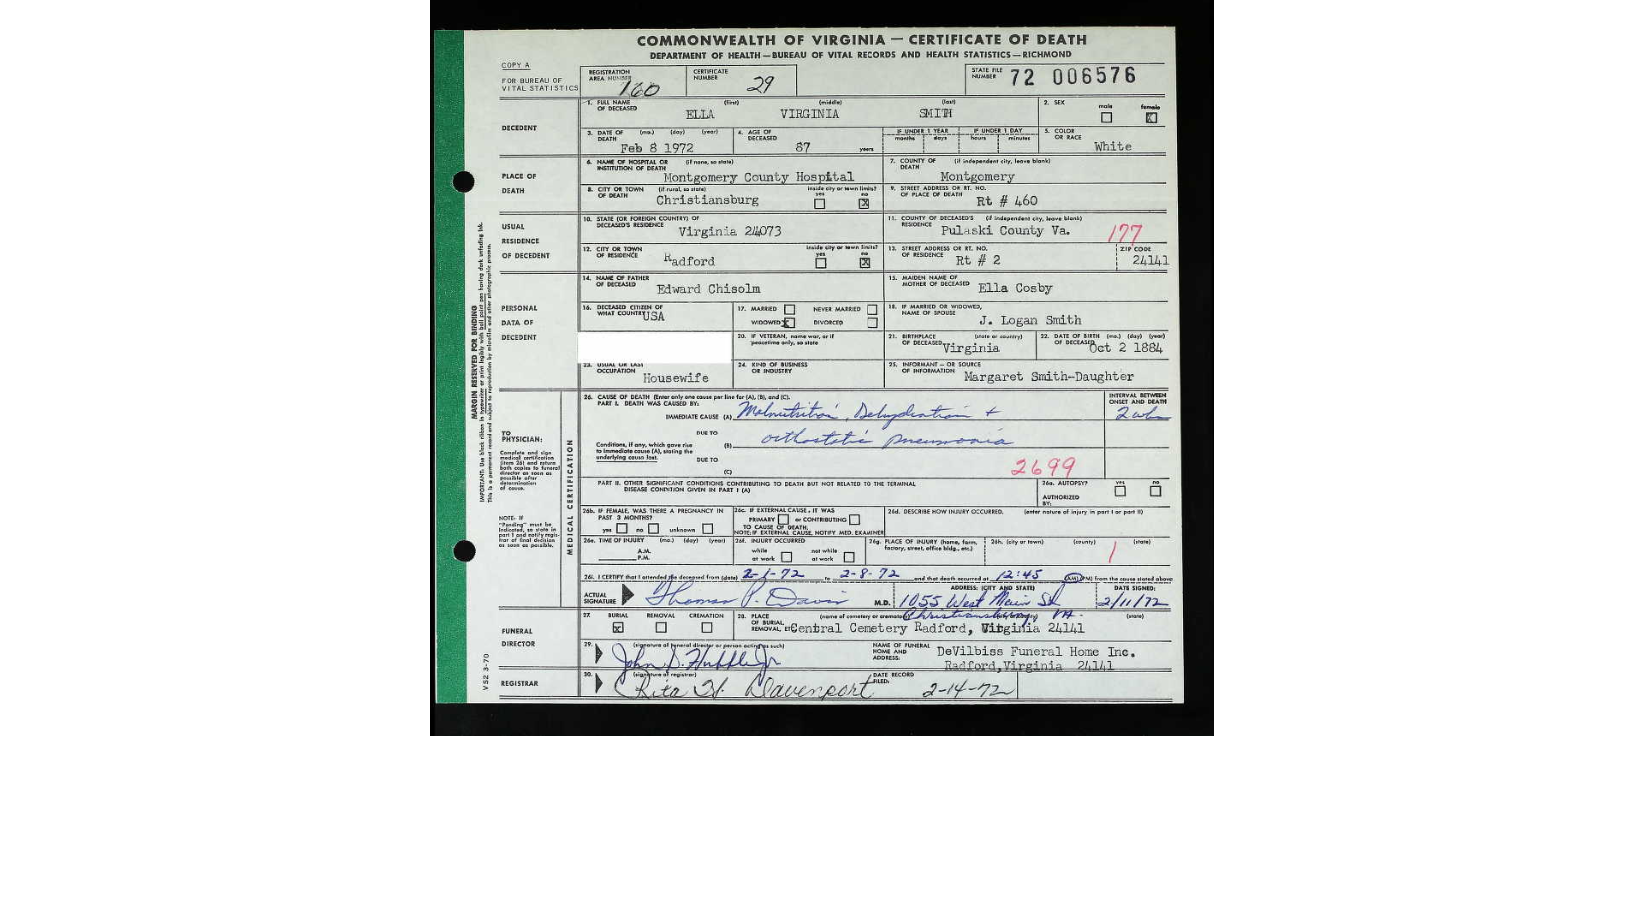 COMMONWEALTH OF VIRGINIA — CERTIFICATE OF DEATH
DEPARTMENT OF HEALTH—BUREAU OF VITAL RECORDS AND HEALTH STATISTICS—RICHMOND
COPY A
FOR BUREAU OF
VITAL STATISTICS
REGISTRATION
AREA NUMBER 160
CERTIFICATE
NUMBER 29
STATE FILE
NUMBER 72 006576
DECEDENT
1. FULL NAME
OF DECEASED (first) (middle) (last)
ELLA VIRGINIA SMITH
2. SEX male female X
3. DATE OF DEATH (mo.) (day) (year)
Feb 8 1972
4. AGE OF
DECEASED 87 years
IF UNDER 1 YEAR months days
IF UNDER 1 DAY hours minutes
5. COLOR
OR RACE White
PLACE OF
DEATH
6. NAME OF HOSPITAL OR
INSTITUTION OF DEATH (if none, so state)
Montgomery County Hospital
7. COUNTY OF
DEATH (if independent city, leave blank)
Montgomery
8. CITY OR TOWN
OF DEATH (if rural, so state)
Christiansburg
inside city or town limits? yes no X
9. STREET ADDRESS OR RT. NO.
OF PLACE OF DEATH
Rt # 460
USUAL
RESIDENCE
OF DECEDENT
10. STATE (OR FOREIGN COUNTRY) OF
DECEASED'S RESIDENCE
Virginia 24073
11. COUNTY OF DECEASED'S
RESIDENCE (if independent city, leave blank)
Pulaski County Va. 177
12. CITY OR TOWN
OF RESIDENCE
Radford
inside city or town limits? yes no X
13. STREET ADDRESS OR RT. NO.
OF RESIDENCE Rt # 2
ZIP CODE
24141
PERSONAL
DATA OF
DECEDENT
14. NAME OF FATHER
OF DECEASED Edward Chisolm
15. MAIDEN NAME OF
MOTHER OF DECEASED Ella Cosby
16. DECEASED CITIZEN OF
WHAT COUNTRY USA
17. MARRIED NEVER MARRIED
WIDOWED X DIVORCED
18. IF MARRIED OR WIDOWED,
NAME OF SPOUSE
J. Logan Smith
20. IF VETERAN, name war, or if
peacetime only, so state
21. BIRTHPLACE
OF DECEASED (state or country)
Virginia
22. DATE OF BIRTH
OF DECEASED (mo.) (day) (year)
Oct 2 1884
23. USUAL OR LAST
OCCUPATION
Housewife
24. KIND OF BUSINESS
OR INDUSTRY
25. INFORMANT – OR SOURCE
OF INFORMATION Margaret Smith-Daughter
MARGIN RESERVED FOR BINDING
TO
PHYSICIAN:
Complete and sign
medical certification
(item 26) and return
both copies to funeral
director as soon as
possible after
determination
of cause.
NOTE: IF
"Pending" must be
indicated, so state in
part I and notify regis-
trar of final decision
as soon as possible.
MEDICAL CERTIFICATION
26. CAUSE OF DEATH (Enter only one cause per line for (A), (B), and (C).
PART I. DEATH WAS CAUSED BY:
INTERVAL BETWEEN
ONSET AND DEATH
IMMEDIATE CAUSE (A) Malnutrition, Dehydration + 2 wks
DUE TO
(B) orthostatic pneumonia
Conditions, if any, which gave rise
to immediate cause (A), stating the
underlying cause last.
DUE TO
(C)
2699
PART II. OTHER SIGNIFICANT CONDITIONS CONTRIBUTING TO DEATH BUT NOT RELATED TO THE TERMINAL
DISEASE CONDITION GIVEN IN PART I (A)
26a. AUTOPSY? yes no
AUTHORIZED
BY:
26b. IF FEMALE, WAS THERE A PREGNANCY IN
PAST 3 MONTHS?
yes no unknown
26c. IF EXTERNAL CAUSE, IT WAS
PRIMARY or CONTRIBUTING
TO CAUSE OF DEATH.
NOTE: IF EXTERNAL CAUSE, NOTIFY MED. EXAMINER
26d. DESCRIBE HOW INJURY OCCURRED. (enter nature of injury in part I or part II)
26e. TIME OF INJURY (mo.) (day) (year)
A.M.
P.M.
26f. INJURY OCCURRED
while
at work
not while
at work
26g. PLACE OF INJURY (home, farm,
factory, street, office bldg., etc.)
26h. (city or town) (county) (state)
26i. I CERTIFY that I attended the deceased from (date) 2-1-72 to 2-8-72 and that death occurred at 12:45 (AM) (PM) from the cause stated above
ACTUAL
SIGNATURE Thomas P. Davis M.D.
ADDRESS: (CITY AND STATE)
1055 West Main St
Christiansburg, VA.
DATE SIGNED:
2/11/72
FUNERAL
DIRECTOR
27. BURIAL X REMOVAL CREMATION
28. PLACE
OF BURIAL,
REMOVAL, (name of cemetery or crematory) (state)
Central Cemetery Radford, Virginia 24141
29. (signature of funeral director or person acting as such)
NAME OF FUNERAL
HOME AND
ADDRESS:
DeVilbiss Funeral Home Inc.
Radford, Virginia 24141
REGISTRAR
30. (signature of registrar)
Rita H. Davenport
DATE RECORD
FILED: 2-14-72
VS2 3-70